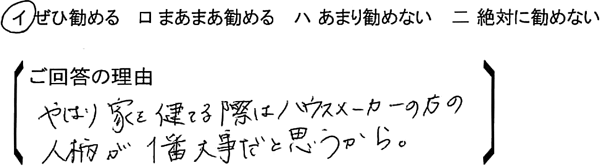 イ ぜひ勧める ロ まあまあ勧める ハ あまり勧めない ニ 絶対に勧めない
ご回答の理由
やはり家を健てる際はハウスメーカーの方の
人柄が1番大事だと思うから。